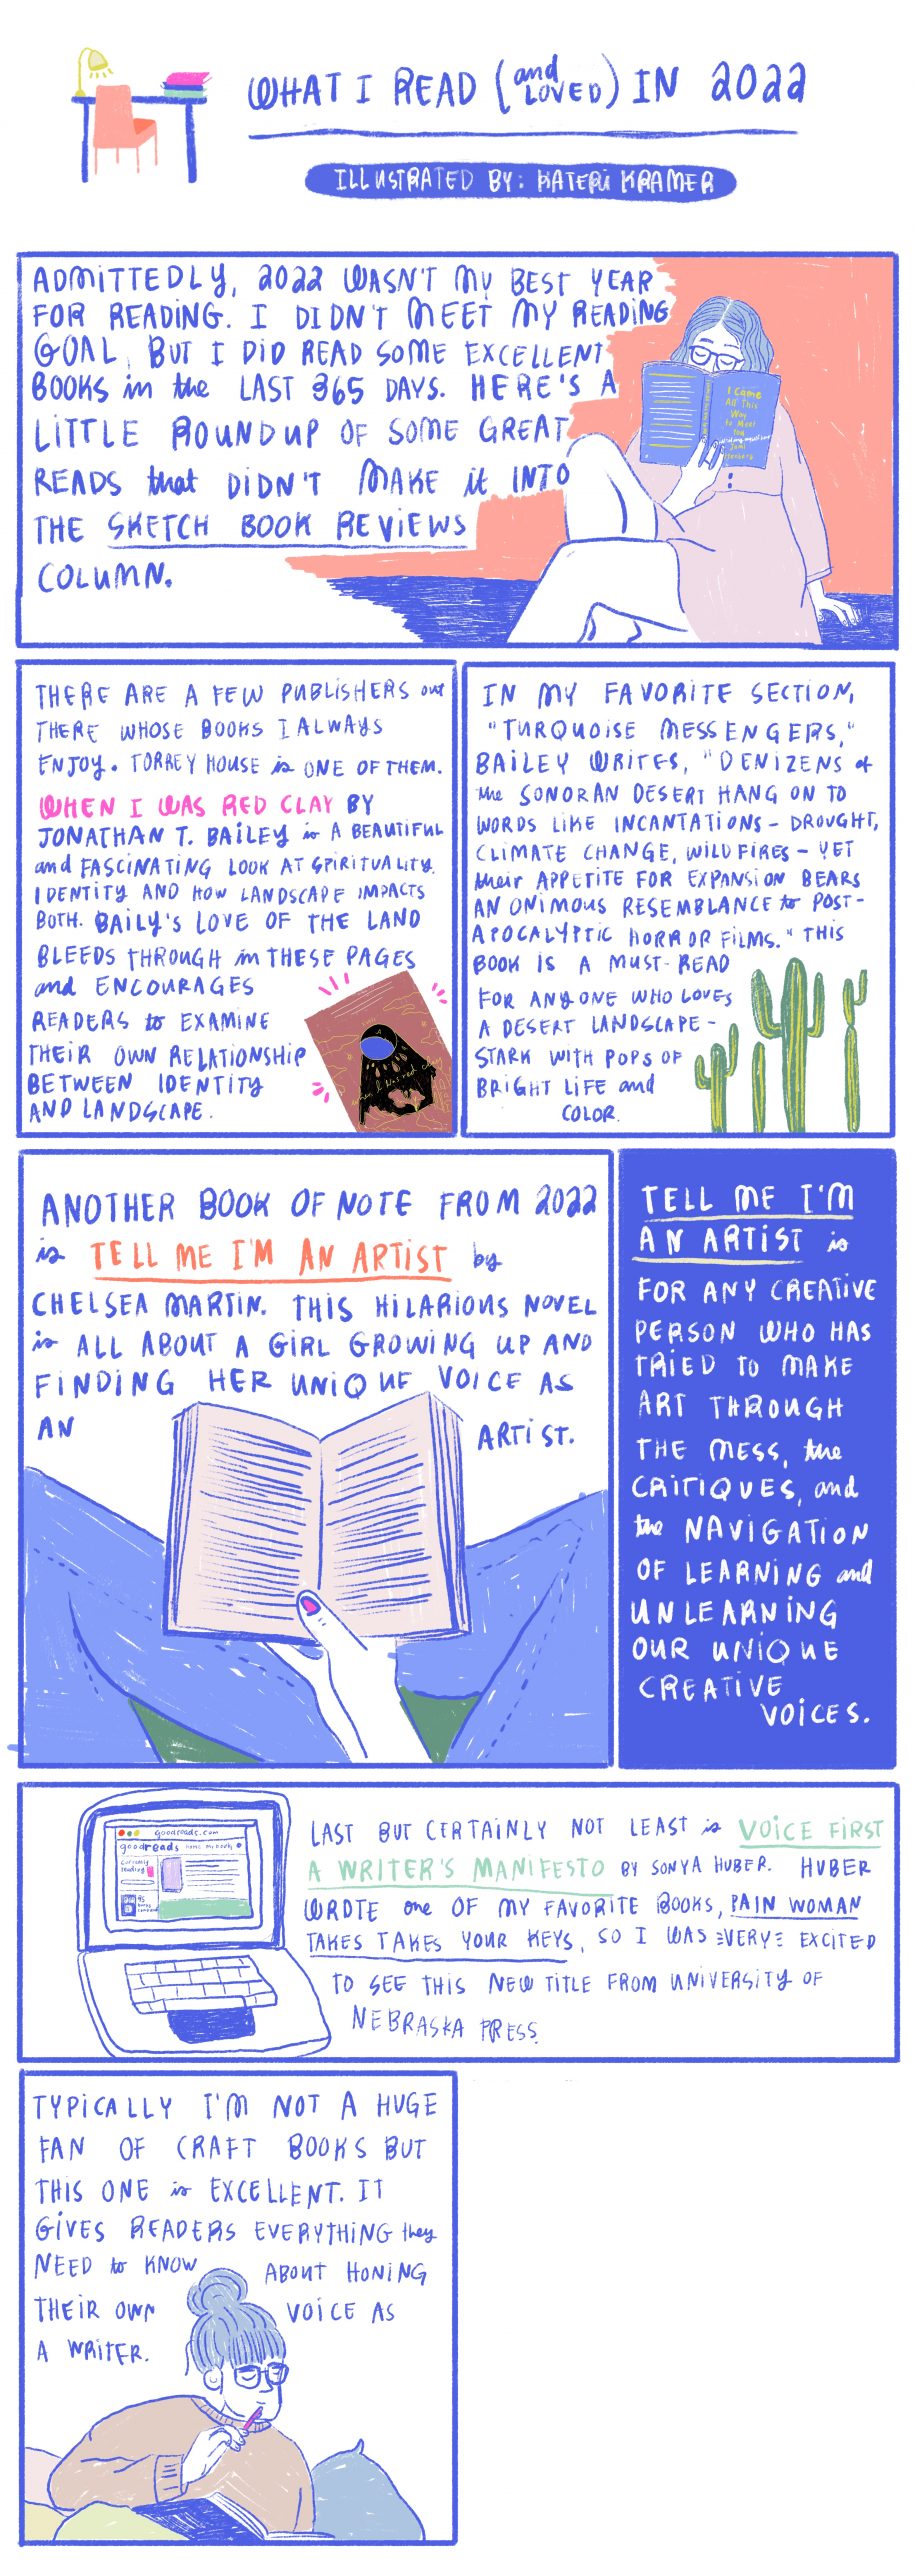 WHAT I READ (and LOVED) IN 2022
ILLUSTRATED BY: KATERI KRAMER
ADMITTEDLY, 2022 WASN'T MY BEST YEAR
FOR READING. I DIDN'T MEET MY READING
GOAL, BUT I DID READ SOME EXCELLENT
BOOKS in the LAST 365 DAYS. HERE'S A
LITTLE ROUNDUP OF SOME GREAT
READS that DIDN'T MAKE it INTO
THE SKETCH BOOK REVIEWS
COLUMN.
I Came
All This
Way
to Meet
You
Jami
THERE ARE A FEW PUBLISHERS out
THERE WHOSE BOOKS I ALWAYS
ENJOY. TORREY HOUSE is ONE OF THEM.
WHEN I WAS RED CLAY BY
JONATHAN T. BAILEY is A BEAUTIFUL
and FASCINATING LOOK AT SPIRITUALITY,
IDENTITY AND HOW LANDSCAPE IMPACTS
BOTH. BAILY'S LOVE OF THE LAND
BLEEDS THROUGH in THESE PAGES
and ENCOURAGES
READERS to EXAMINE
THEIR OWN RELATIONSHIP
BETWEEN IDENTITY
AND LANDSCAPE.
when I was red clay
IN MY FAVORITE SECTION,
"TURQUOISE MESSENGERS,"
BAILEY WRITES, "DENIZENS of
the SONORAN DESERT HANG ON TO
WORDS LIKE INCANTATIONS - DROUGHT,
CLIMATE CHANGE, WILDFIRES - YET
their APPETITE FOR EXPANSION BEARS
AN ONIMOUS RESEMBLANCE to POST-
APOCALYPTIC HORROR FILMS." THIS
BOOK IS A MUST-READ
FOR ANYONE WHO LOVES
A DESERT LANDSCAPE -
STARK WITH POPS OF
BRIGHT LIFE and
COLOR.
ANOTHER BOOK OF NOTE FROM 2022
is TELL ME I'M AN ARTIST by
CHELSEA MARTIN. THIS HILARIOUS NOVEL
is ALL ABOUT A GIRL GROWING UP AND
FINDING HER UNIQUE VOICE AS
AN ARTIST.
TELL ME I'M
AN ARTIST is
FOR ANY CREATIVE
PERSON WHO HAS
TRIED TO MAKE
ART THROUGH
THE MESS, the
CRITIQUES, and
the NAVIGATION
OF LEARNING and
UNLEARNING
OUR UNIQUE
CREATIVE
VOICES.
goodreads.com
goodreads home my books
currently
reading
LAST BUT CERTAINLY NOT LEAST is VOICE FIRST
A WRITER'S MANIFESTO BY SONYA HUBER. HUBER
WROTE one OF MY FAVORITE BOOKS, PAIN WOMAN
TAKES TAKES YOUR KEYS, SO I WAS VERY EXCITED
TO SEE THIS NEW TITLE FROM UNIVERSITY OF
NEBRASKA PRESS.
TYPICALLY I'M NOT A HUGE
FAN OF CRAFT BOOKS BUT
THIS ONE is EXCELLENT. IT
GIVES READERS EVERYTHING they
NEED to KNOW ABOUT HONING
THEIR OWN VOICE AS
A WRITER.